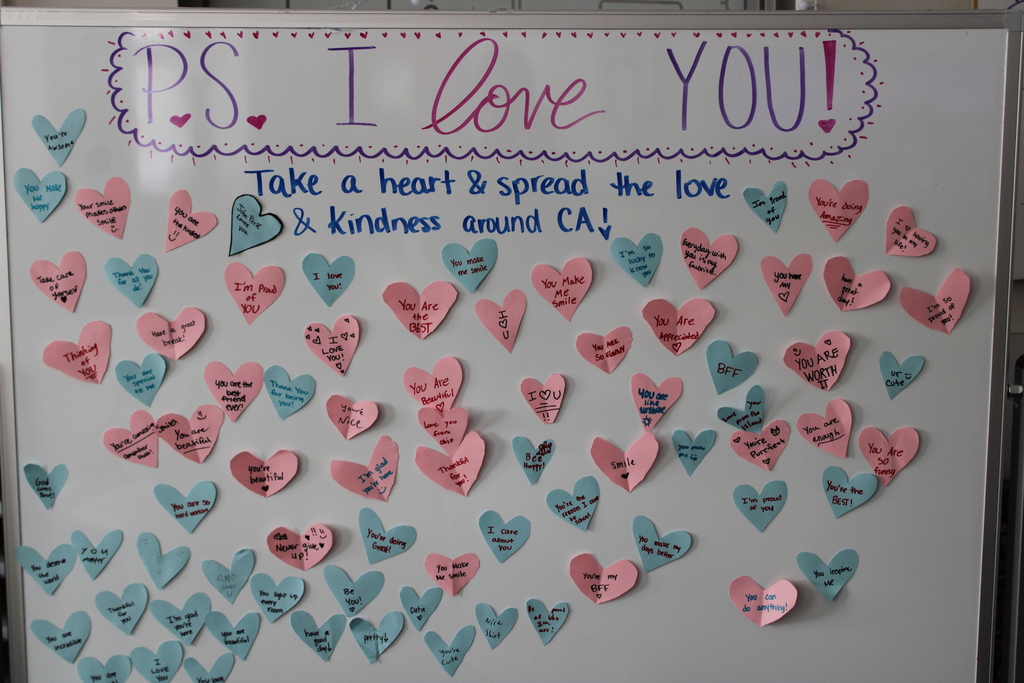 P.S. I love YOU!
Take a heart & spread the love
& kindness around CA!
You're
Awesome
You Make
Me
happy
Your smile
makes others
smile
You are
the kindest
I'm Proud
of you
You're doing
Amazing
I ♡ having
you in my
life!
Take care
of
yourself
Thank You
for all you
do!
I'm Proud
of YOU
I love
you!
You make
me smile
You Are
the
BEST
I
♡
U
You Make
Me
Smile
I'm so
lucky to
know you
Everyday with
you is my
favorite.
you have
my
♡
have
a great
day!
I'm so
proud of
you!
Thinking
of
YOU
Have a great
break!
You are
special
to me
you are the
best
friend ever!
Thank You
for being
you!
I
LOVE
YOU!
You Are
Beautiful
Love you
from
ohio
Thankful
for
you're
Nice
I ♡ U
!!
You ARE
SO FUNNY
You Are
Appreciated
BFF
YOU ARE
WORTH
IT
ur
cute
You are
like
sunshine
You are
beautiful
you're
beautiful
I'm glad
you're here
Bee
Happy!
Smile
you make
me
You're
Purrfect
You are
enough
You Are
so
funny
God
You are so
hard working
You're the
reason I
I'm proud
of you!
You're the
BEST!
You deserve
the
world
YOU
matter
Never give
up!
You're doing
Great!
I care
about
you
You make my
days better
You Make
Me smile
You're my
BFF
You can
do anything!
You inspire
Me
Thankful
for
you
I'm glad
you're
here
You light up
every
room
Be
You!
Cutie
You are
incredible
you are
beautiful
have a
good
day
pretty
You're
Cute
Nice
Shirt
You are
I
Love
You
You look